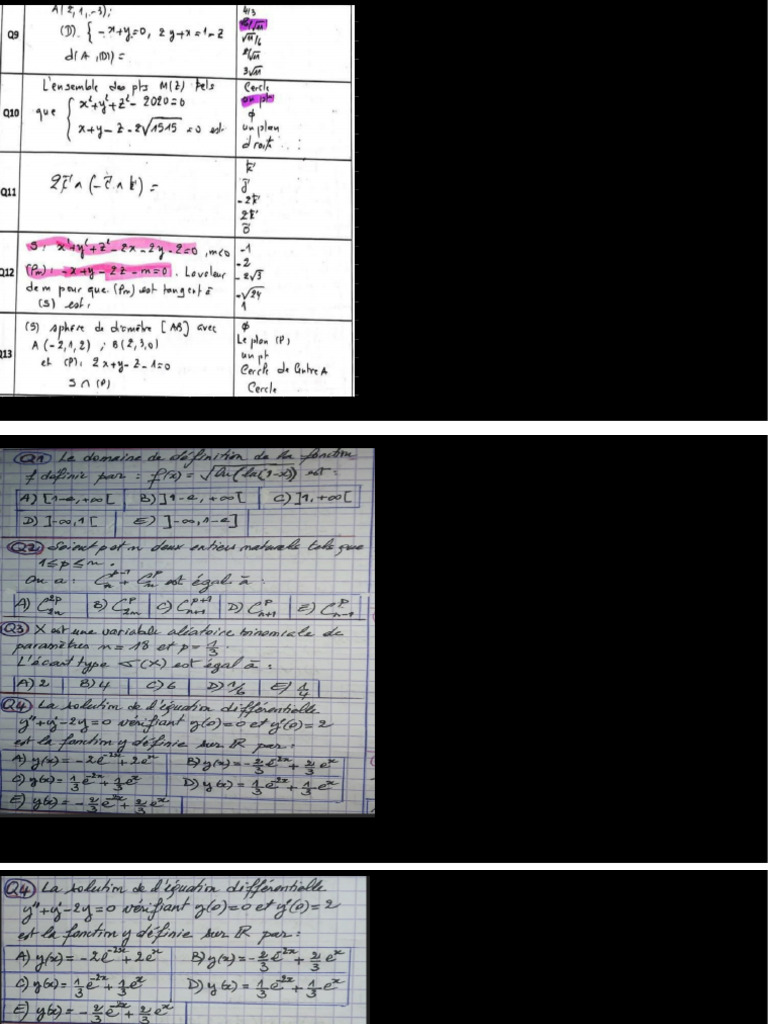 A(2,1,-3);
Q9
(D). { -x+y=0, 2y+x=1-z
d(A,(D))=
4/3
√11/6
3√11
L'ensemble des pts M(z) tels
Q10
que { x²+y²+z²-2020=0
x+y-z-2√1515=0 est
Cercle
un pt
ϕ
un plan
droite
Q11
k⃗
j⃗
-2k⃗
2k⃗
0⃗
S: x²+y²+z²-2x-2y-2=0, m<0
Q12
(Pm): -x+y-2z-m=0. La valeur
de m pour que (Pm) est tangent à
(S) est:
-1
-2
-2√3
-√24
1
(S) sphère de diamètre [AB] avec
Q13
A(-2,1,2); B(2,3,0)
et (P): 2x+y-z-1=0
S∩(P)
ϕ
Le plan (P)
un pt
Cercle de Centre A
Cercle
Q1 Le domaine de définition de la fonction
f définie par : f(x)=√ln(ln(1-x)) est:
A) [1-e,+∞[ B) ]1-e,+∞[ C) ]1,+∞[
D) ]-∞,1[ E) ]-∞,1-e]
Q2 Soient p et n deux entiers naturels tels que
1≤p≤n.
On a : C_n^{p-1} + C_n^p est égal à :
A) C_{2n}^{2p} B) C_{2n}^p C) C_{n+1}^{p+1} D) C_{n+1}^p E) C_{n-1}^p
Q3 X est une variable aléatoire binomiale de
paramètres n=18 et p=1/3.
L'écart type σ(X) est égal à :
A) 2 B) 4 C) 6 D) 1/6 E) 1/4
Q4 La solution de l'équation différentielle
y''+y'-2y=0 vérifiant y(0)=0 et y'(0)=2
est la fonction y définie sur ℝ par:
A) y(x)=-2e^{-2x}+2e^x B) y(x)=-2/3 e^{-2x}+2/3 e^x
C) y(x)=1/3 e^{-2x}+1/3 e^x D) y(x)=1/3 e^{-2x}+1/3 e^x
E) y(x)=-2/3 e^{-2x}+2/3 e^x
Q4 La solution de l'équation différentielle
y''+y'-2y=0 vérifiant y(0)=0 et y'(0)=2
est la fonction y définie sur ℝ par:
A) y(x)=-2e^{-2x}+2e^x B) y(x)=-2/3 e^{-2x}+2/3 e^x
C) y(x)=1/3 e^{-2x}+1/3 e^x D) y(x)=1/3 e^{-2x}+1/3 e^x
E) y(x)=-2/3 e^{-2x}+2/3 e^x